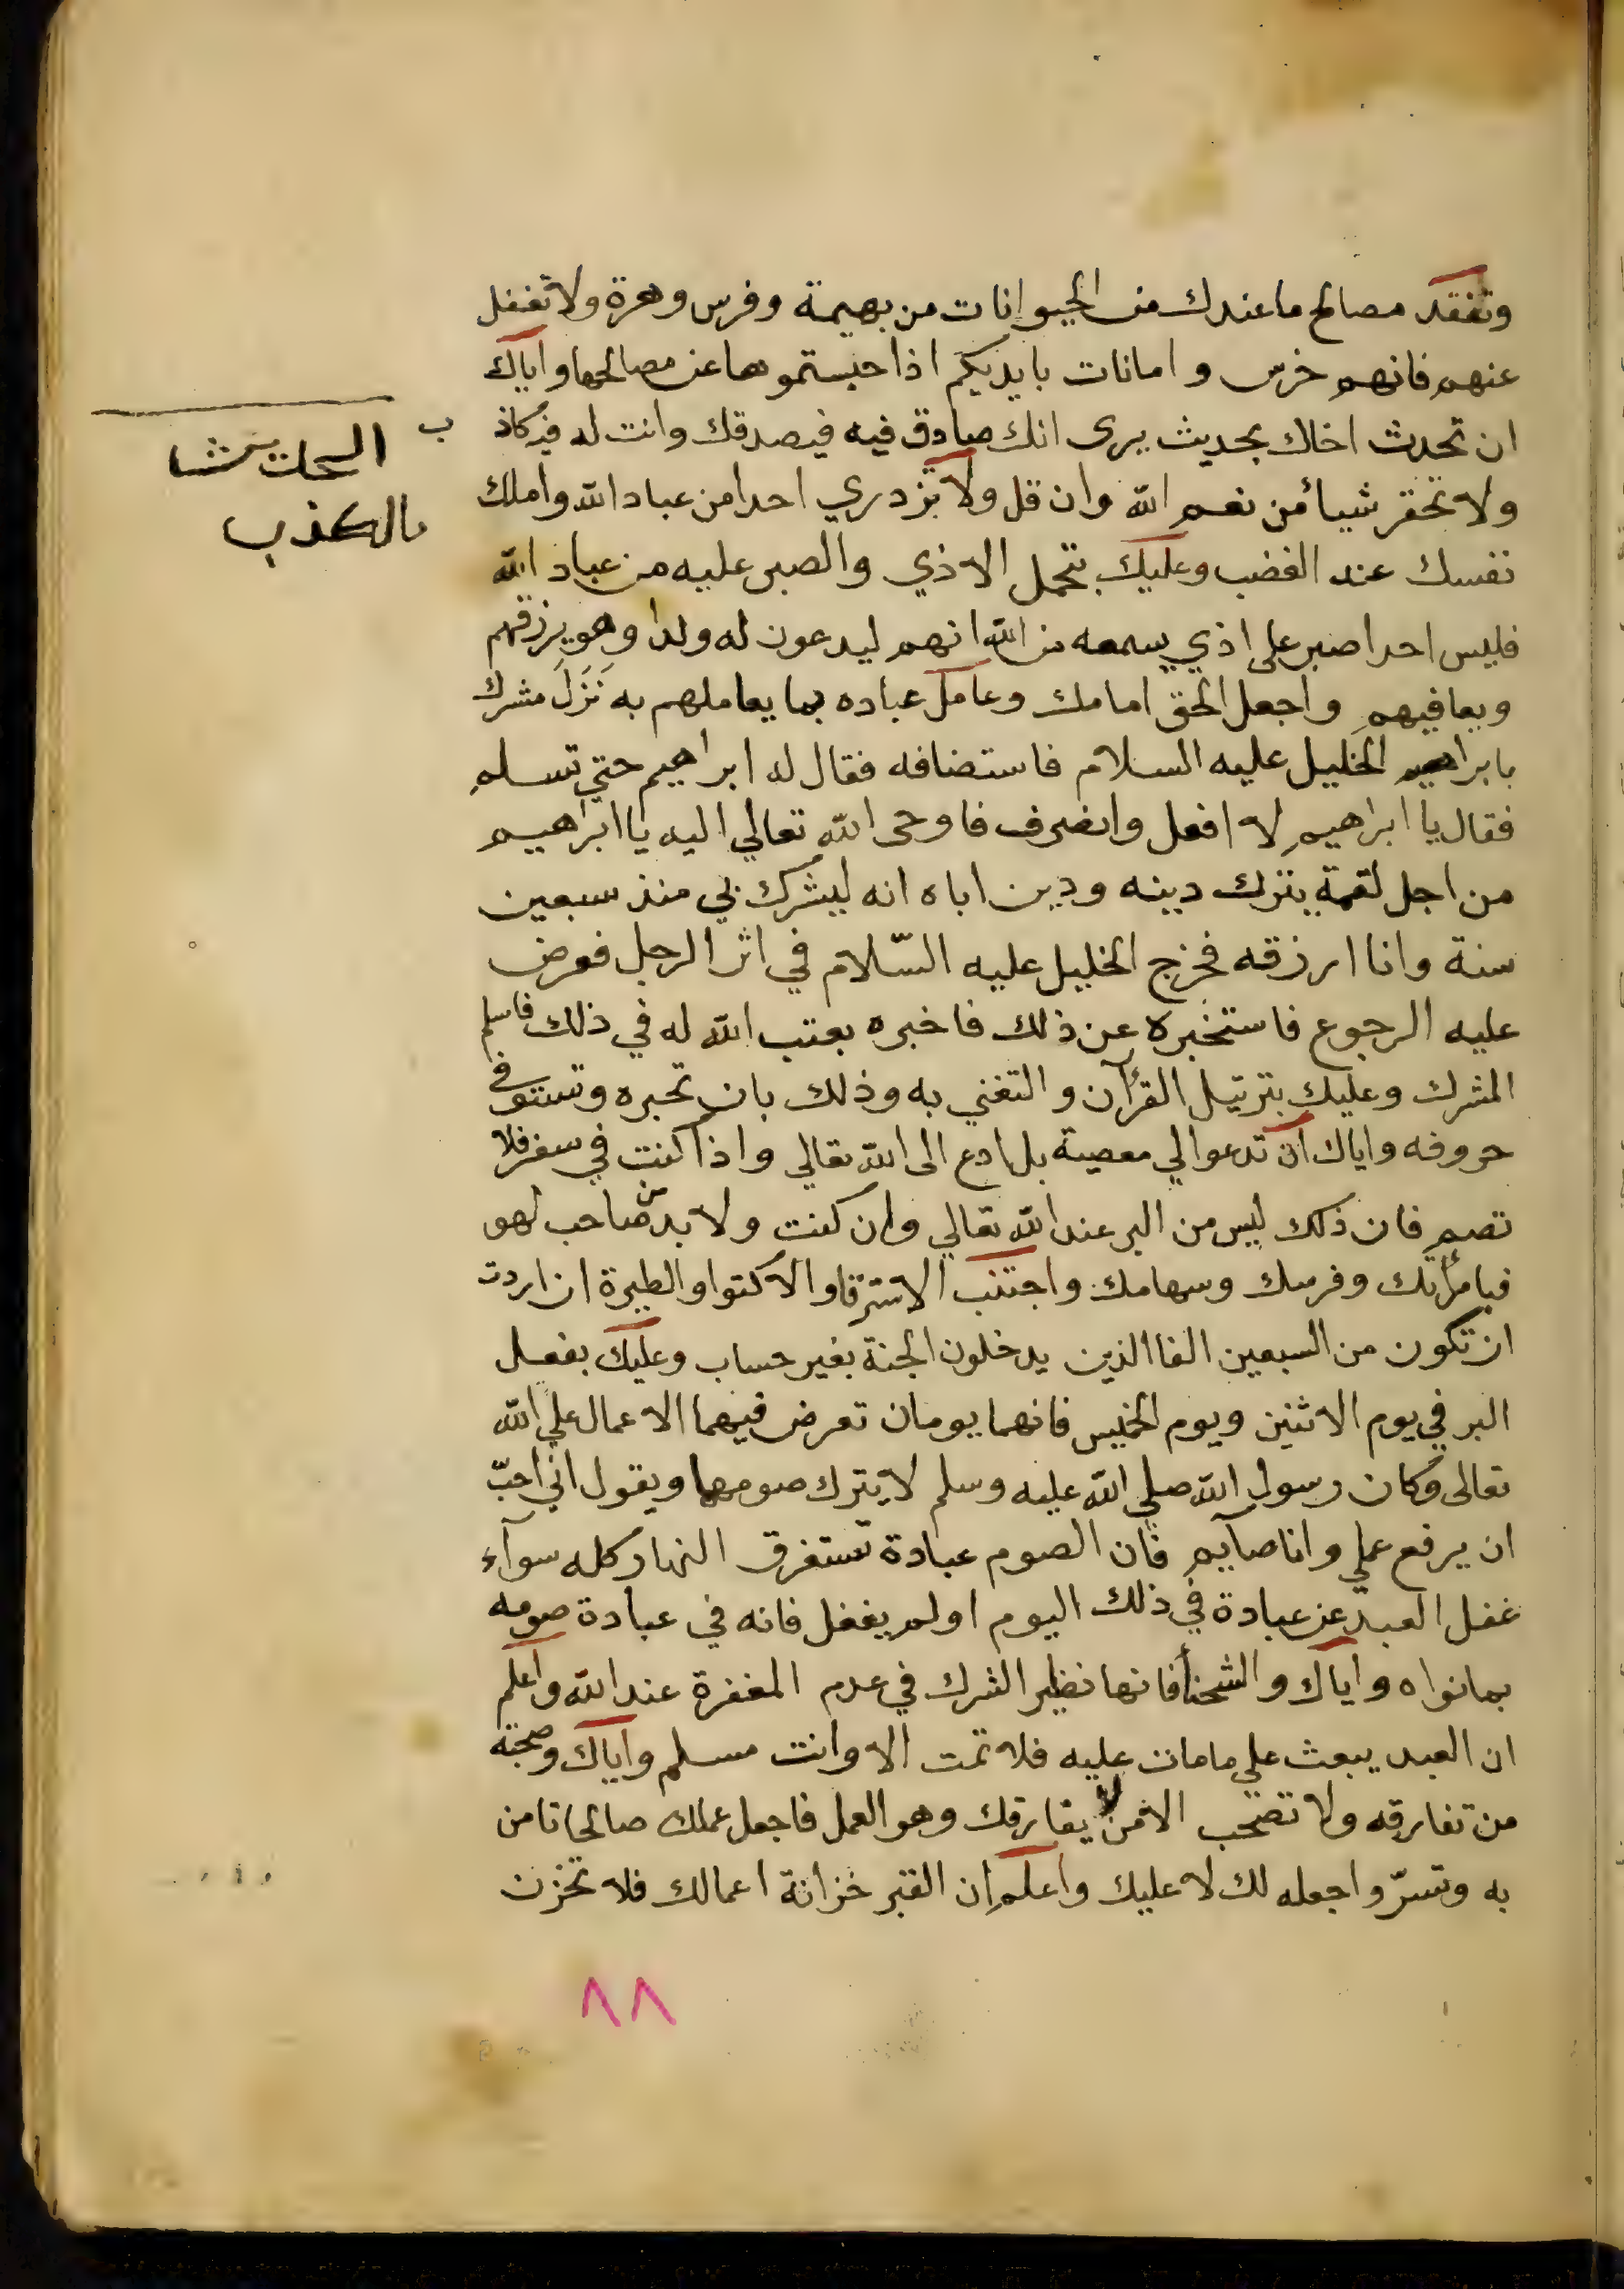 وتفقد مصالح ما عندك من الحيوانات من بهيمة وفرس وهرة ولا تغفل
عنهم فانهم خرس و امانات بايديكم اذا حبستموها عن مصالحها واياك
ان تحدث اخاك بحديث يرى انك صادق فيه فيصدقك وانت له فيه كاذب
ولا تحقر شيأ من نعم الله وان قل ولا تزدري احدا من عباد الله واملك
نفسك عند الغضب وعليك بتحمل الاذي والصبر عليه من عباد الله
فليس احدا صبر على اذي يسمعه من الله انهم ليدعون له ولدا وهو يرزقهم
ويعافيهم واجعل الحق امامك وعامل عباده بما يعاملهم به نَزَلَ مشرك
بابراهيم الخليل عليه السلام فاستضافه فقال له ابراهيم حتي تسلم
فقال يا ابراهيم لا افعل وانصرف فاوحى الله تعالي اليه يا ابراهيم
من اجل لقمة يترك دينه ودين اباه انه ليشرك بي منذ سبعين
سنة وانا ارزقه فخرج الخليل عليه السّلام في اثر الرجل فعرض
عليه الرجوع فاستخبره عن ذلك فاخبره بعتب الله له في ذلك فاسلم
المشرك وعليك بترتيل القرآن والتغني به وذلك بان تحبره وتستوفي
حروفه واياك ان تدعوا لي معصية بل ادع الى الله تعالي واذا كنت في سفر فلا
تصم فان ذلك ليس من البر عند الله تعالي وان كنت ولا بد من صاحب لهو
فبامرأتك وفرسك وسهامك واجتنب الاسترقا والاكتوا والطيرة ان اردت
ان تكون من السبعين الفا الذين يدخلون الجنة بغير حساب وعليك بفعل
البر في يوم الاثنين ويوم الخميس فانهما يومان تعرض فيهما الاعمال علي الله
تعالى وكان رسول الله صلي الله عليه وسلم لا يترك صومهما ويقول اني احبّ
ان يرفع عملي وانا صايم فان الصوم عبادة تستغرق النهار كله سوآء
غفل العبد عن عبادة في ذلك اليوم او لم يغفل فانه في عبادة صومه
بما نواه واياك والشحنأ فانها نظير الشرك في عدم المغفرة عند الله واعلم
ان العبد يبعث علي ما مات عليه فلا تمت الا وانت مسلم واياك وصحبة
من تفارقه ولا تصحب الا من لا يفارقك وهو العمل فاجعل عملك صالحا تامن
به وتسرّ واجعله لك لا عليك واعلم ان القبر خزانة اعمالك فلا تخزن
بالكذب
٨٨